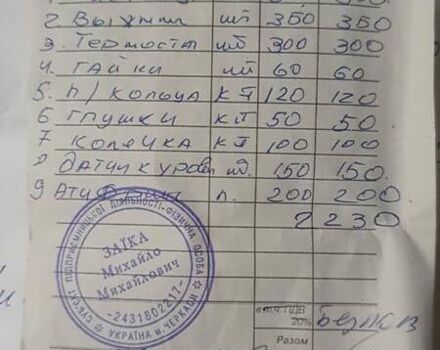 2. Выжим шт 350 350
3. Термостат шт 300 300
4. гайки шт 60 60
5. п/кольца к т 120 120
6 глушки к т 50 50
7 Колечка к т 100 100
8 Датчик уров шт. 150 150.
9 п. 200 200
2230
СУБ'ЄКТ ПІДПРИЄМНИЦЬКОЇ ДІЯЛЬНОСТІ-ФІЗИЧНА ОСОБА
ЗАЇКА
Михайло
Михайлович
-2431802217-
* УКРАЇНА м.ЧЕРКАСИ *
в т.ч. ПДВ
20%
Без ПДВ
Разом